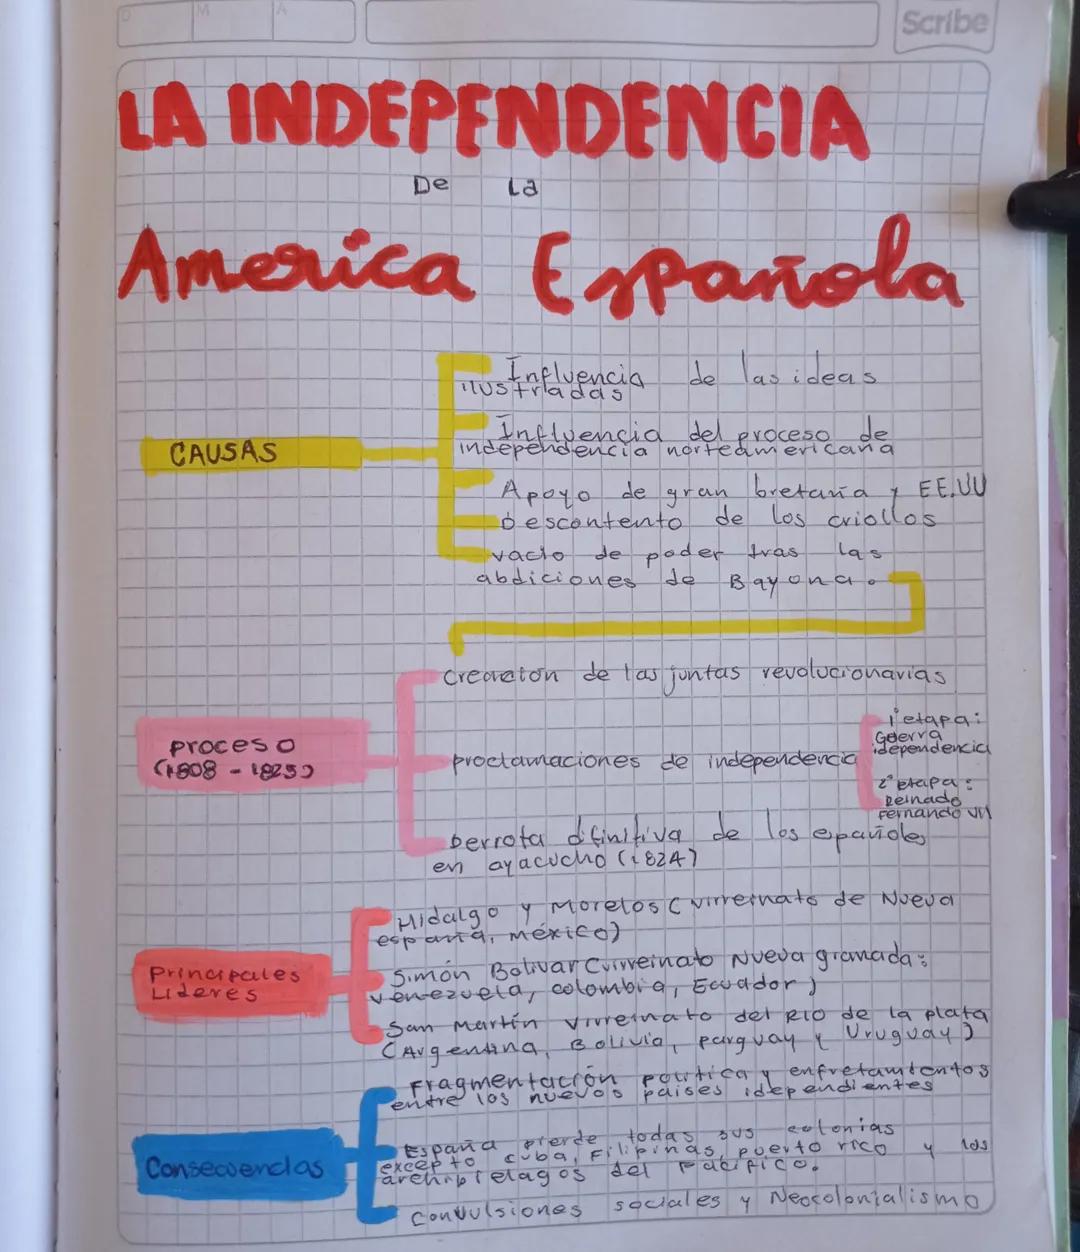 D
M
A
Scribe
LA INDEPENDENCIA
De La
America Española
Influencia de las ideas
ilustradas
CAUSAS
Influencia del proceso de
independencia norteamericana
Apoyo de gran bretaña y EE.UU
Descontento de los criollos
vacio de poder tras las
abdiciones de Bayona.
proceso
(1808 - 1825)
creación de las juntas revolucionarias
proclamaciones de independencia
1°etapa:
Guerra
idependencia
2°etapa:
Reinado
Fernando VII
Derrota difinitiva de los epañoles
en ayacucho (1824)
Principales
Lideres
Hidalgo y Morelos (virreinato de Nueva
españa, méxico)
Simón Bolivar (virreinato Nueva granada:
venezuela, colombia, Ecuador)
San Martín virreinato del RIO de la plata
(Argentina, Bolivia, parguay y Uruguay)
Consecuencias
Fragmentación politica y enfretamientos
entre los nuevos paises idependientes
España pierde todas sus colonias
excepto cuba, Filipinas, puerto rico y los
archipielagos del Pacifico.
Convulsiones sociales y Neocolonialismo